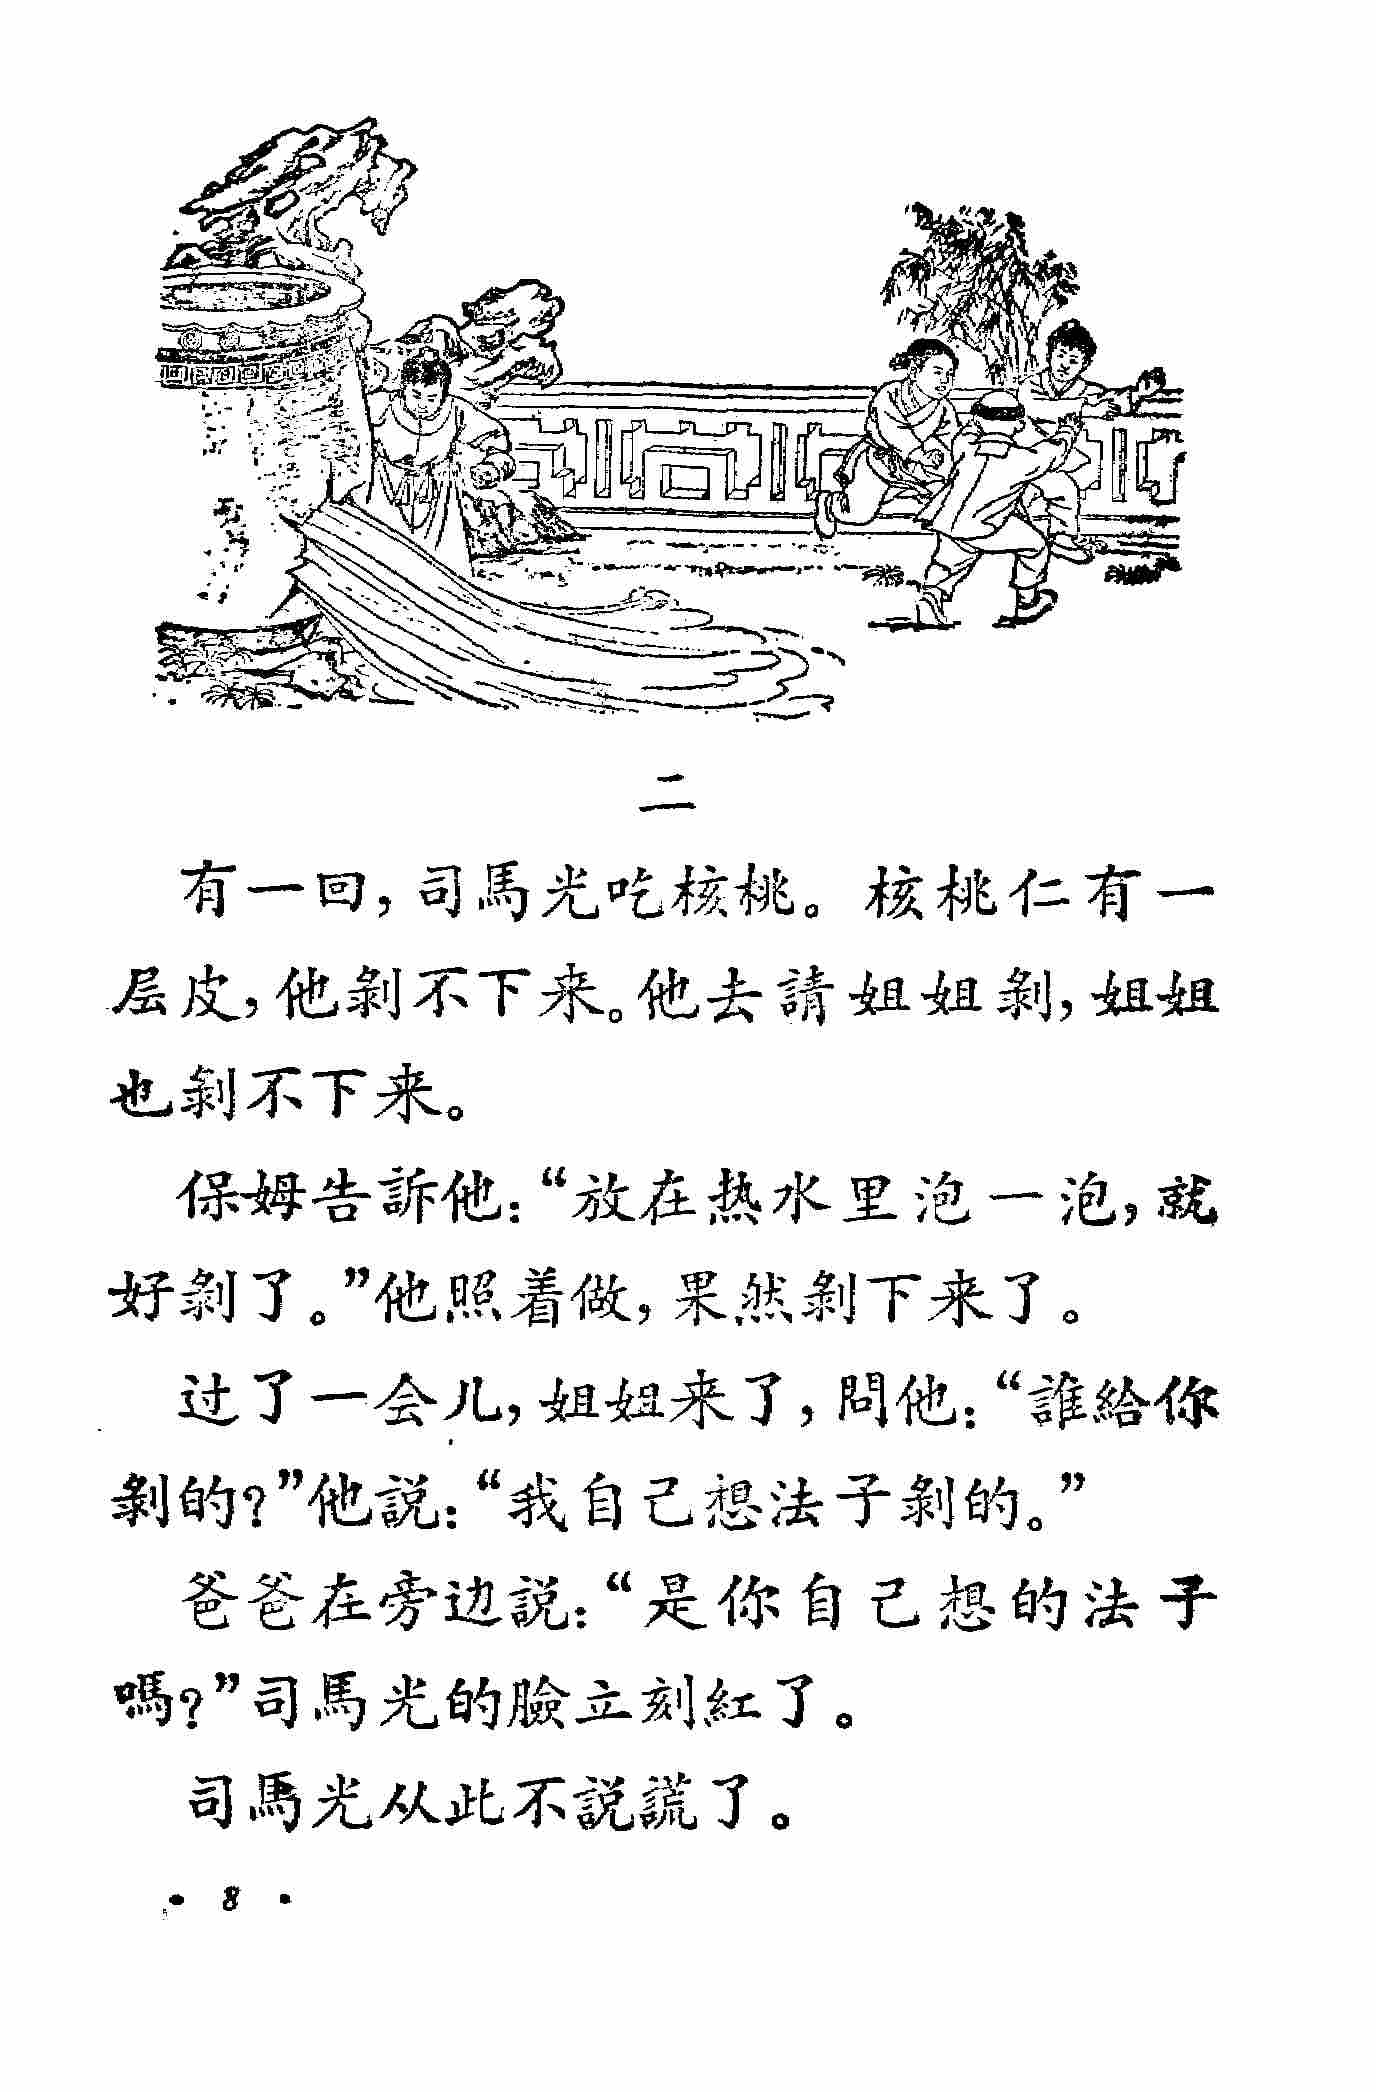 二
有一回，司馬光吃核桃。核桃仁有一
层皮，他剝不下来。他去請姐姐剝，姐姐
也剝不下来。
保姆告訴他：“放在热水里泡一泡，就
好剝了。”他照着做，果然剝下来了。
过了一会儿，姐姐来了，問他：“誰給你
剝的？”他説：“我自己想法子剝的。”
爸爸在旁边説：“是你自己想的法子
嗎？”司馬光的臉立刻紅了。
司馬光从此不説謊了。
· 8 ·